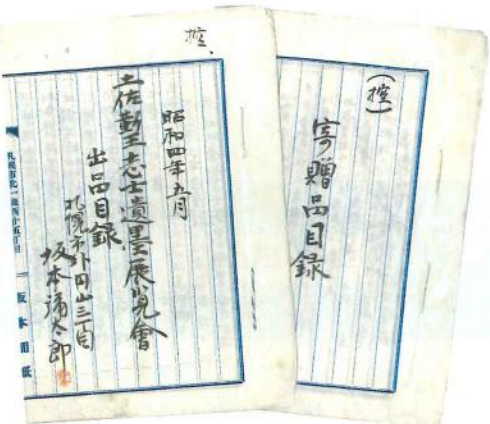 控
昭和四年五月
土佐勤王志士遺墨展覧會
出品目録
札幌市外円山三丁目
坂本彌太郎
坂本用紙
(控)
寄贈品目録